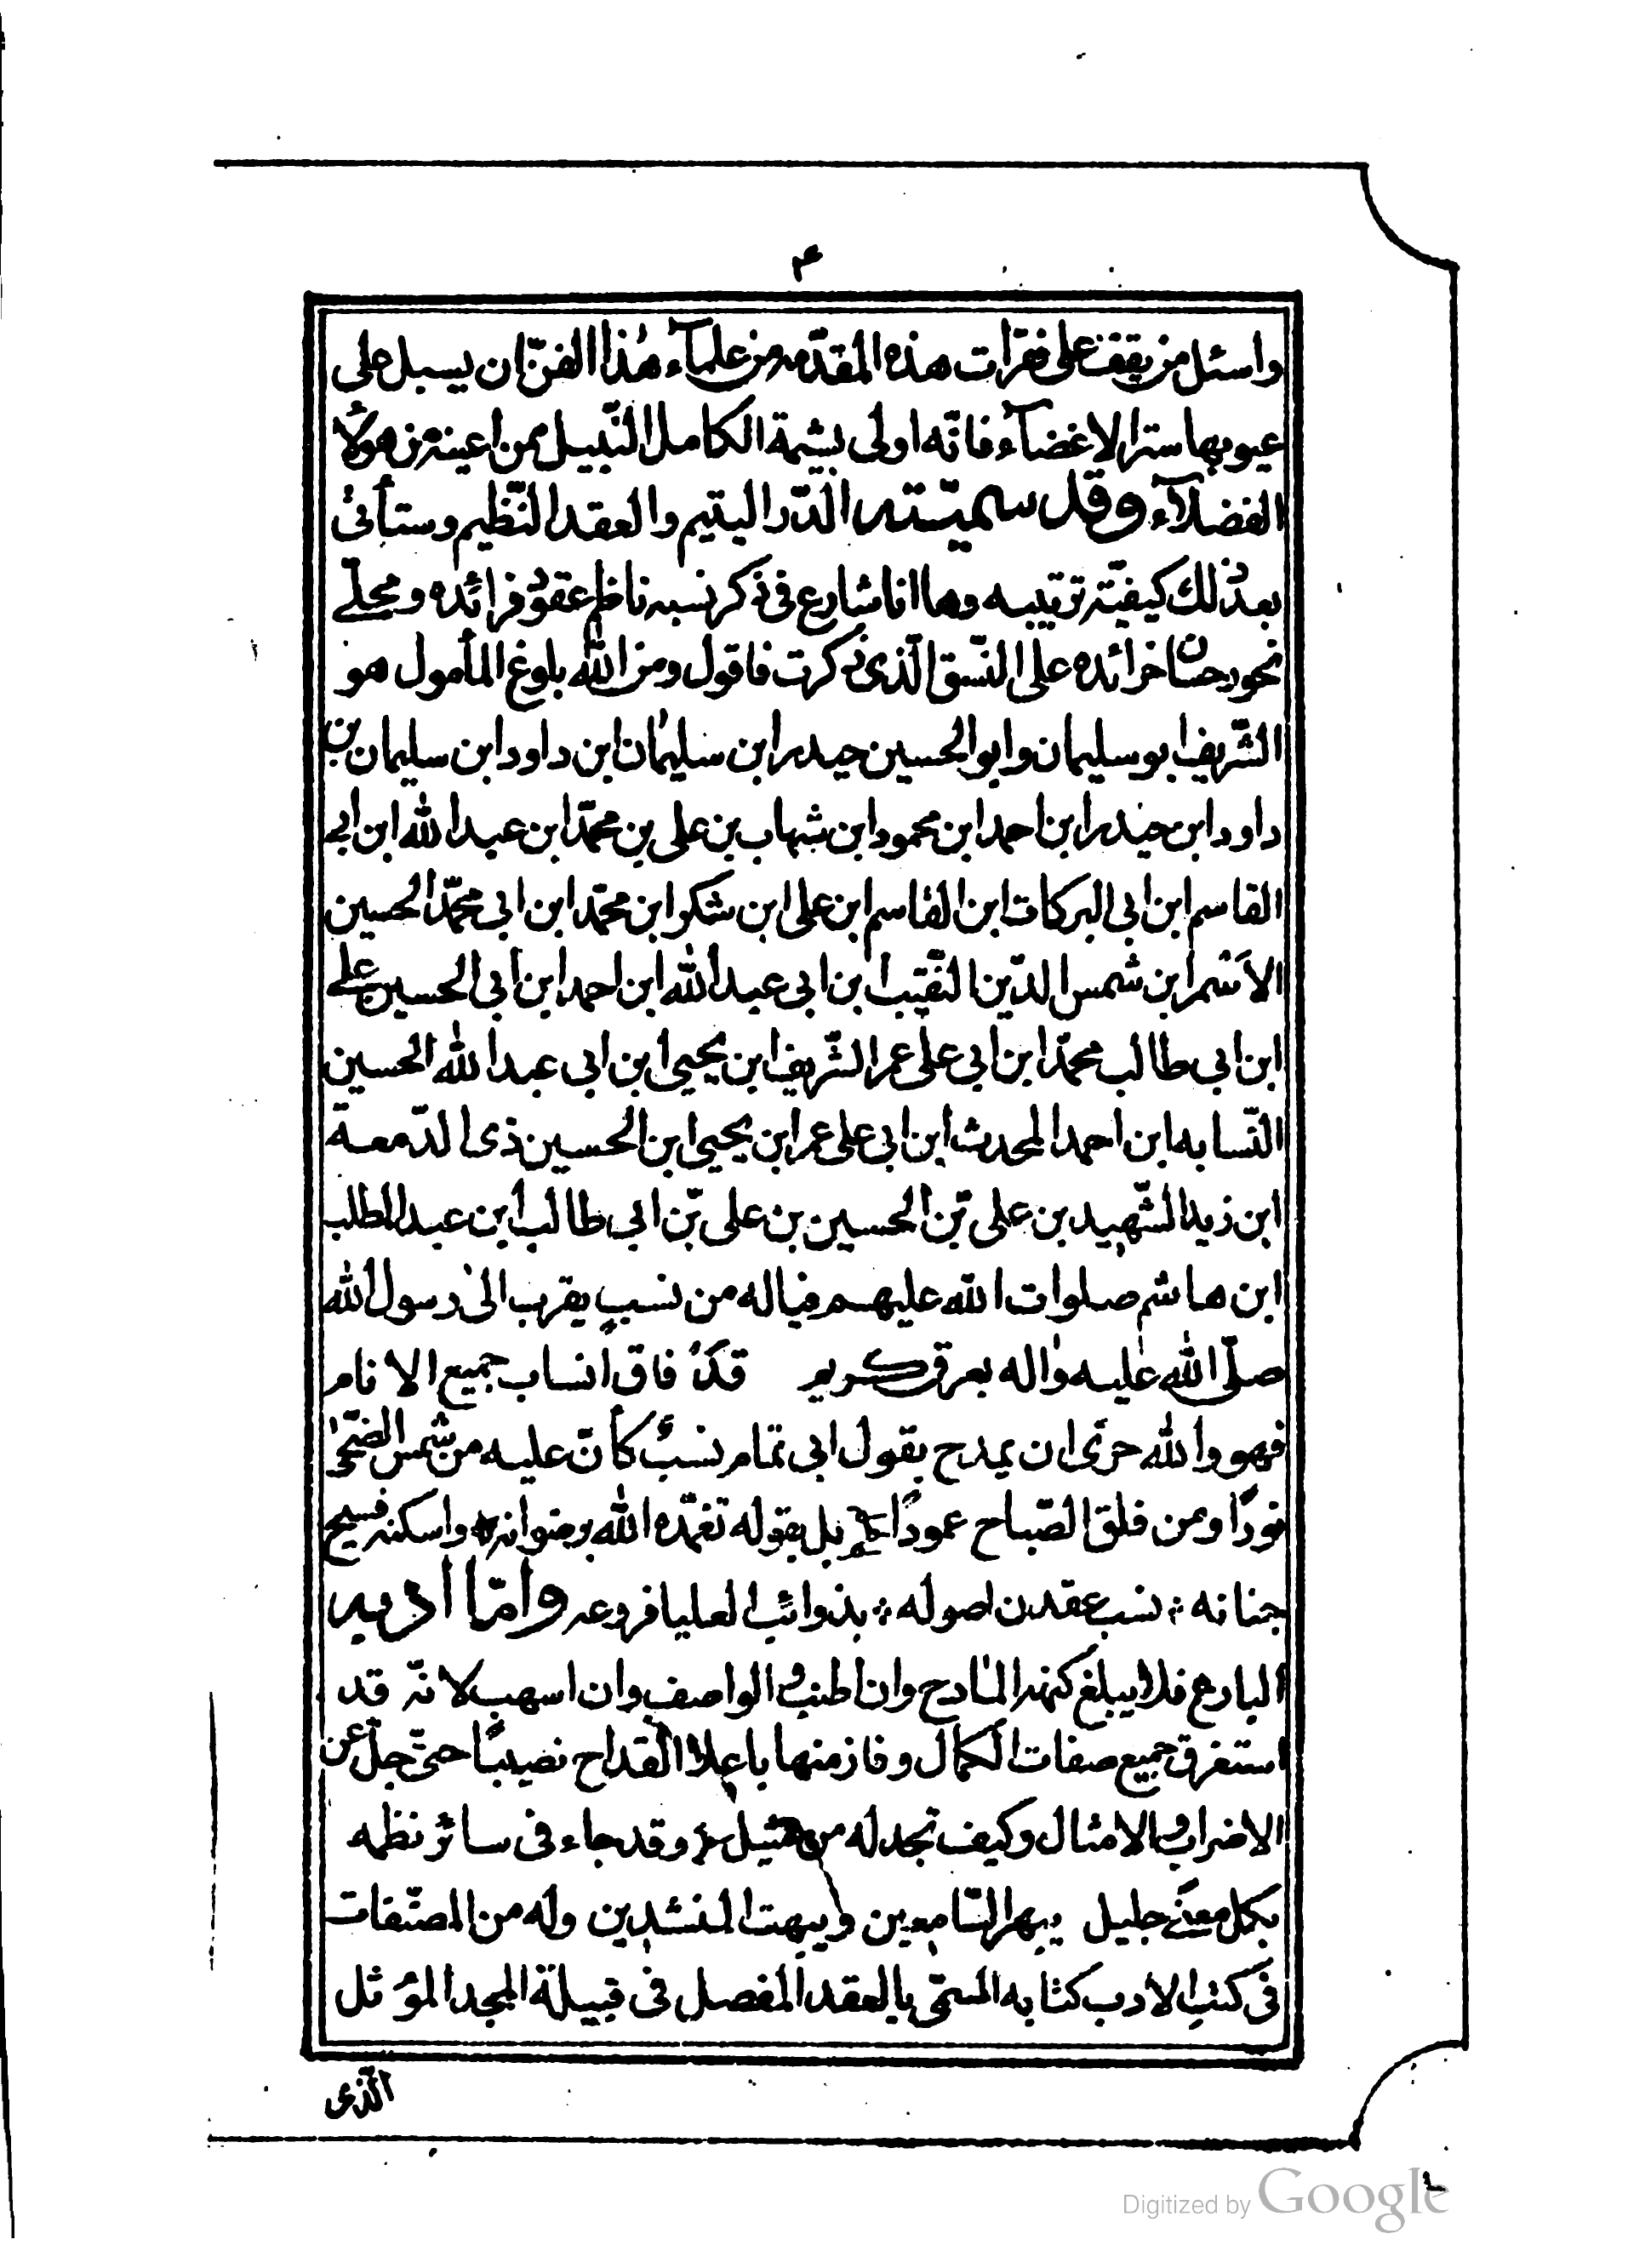 ۴
واسئل من يقف على فقرات هذه المقدّمه من علمآء هٰذا الفنّ ان يسبل على
عيوبها ستر الاغضآء فانّه اولى بشيمة الكامل النّبيل ممن اعينه من هولآ
الفضلآء وقد سميّته الدّر اليتيم والعقد النّظيم وستأتى
بعد ذلك كيفيّة ترتيبه وها انا شارع فى ذكر نسبه ناظم عقود فرائده ومحلّے
نحور حسان خرائده على النّسق الّذى ذكرت فاقول ومن الله بلوغ المأمول هو
الشّريف ابو سليمان وابو الحسين حيدر ابن سليمٰان ابن داود ابن سليمان بن
داود ابن حيدر ابن احمد ابن محمود ابن شهاب بن على بن محمّد ابن عبد الله ابن ابى
القاسم ابن ابى البركات ابن القاسم ابن على ابن شكر ابن محمّد ابن ابى محمّد الحسين
الاسمر ابن شمس الدّين النّقيب ابن ابى عبد الله ابن احمد ابن ابى الحسين على
ابن ابى طالب محمّد ابن ابى على عمر الشّريف ابن يحيى ابن ابى عبد الله الحسين
النّسابه ابن احمد المحدث ابن ابى على عمر ابن يحيى ابن الحسين ذى الدّمعة
ابن زيد الشّهيد بن على بّن الحسين بن على بّن ابى طالب ابن عبد المطلب
ابن هاشم صلوات الله عليهم فياله من نسبٍ يقرب الىٰ رسول الله
صلّى الله عليه واٰله بعرق كريم قَدْ فاق انساب جميع الانام
فهو والله حرىّ ان يمدح بقول ابى تمام نسبٌ كأنّ عليه من شمس الضّحىٰ
نورًا ومن فلق الصّباح عمودًا بل بقوله تغمّده الله برضوانه واسكنه فسيح
جنانه ؞ نسب عقدن اصوله ؞ بذوائب العليا فروعه وامّا ادبه
البارع فلا يبلغ كنهه المٰادح وان اطنب و الواصف وان اسهب لانّه قد
استغرق جميع صفات الكمال وفاز منها باعلا القداح نصيبًا حتّى جلّ عن
الاضراب والامثال وكيف تجد له من مثيل وقد جاء فى سائر نظمه
بكل معنًے جليل يبهر السّامعين ويبهت المنشدين وله من المصنّفات
فى كتب الادب كتابه المسمّى بالعقد المفصل فى قبيلة المجد المؤثل
الّذى
Digitized by Google